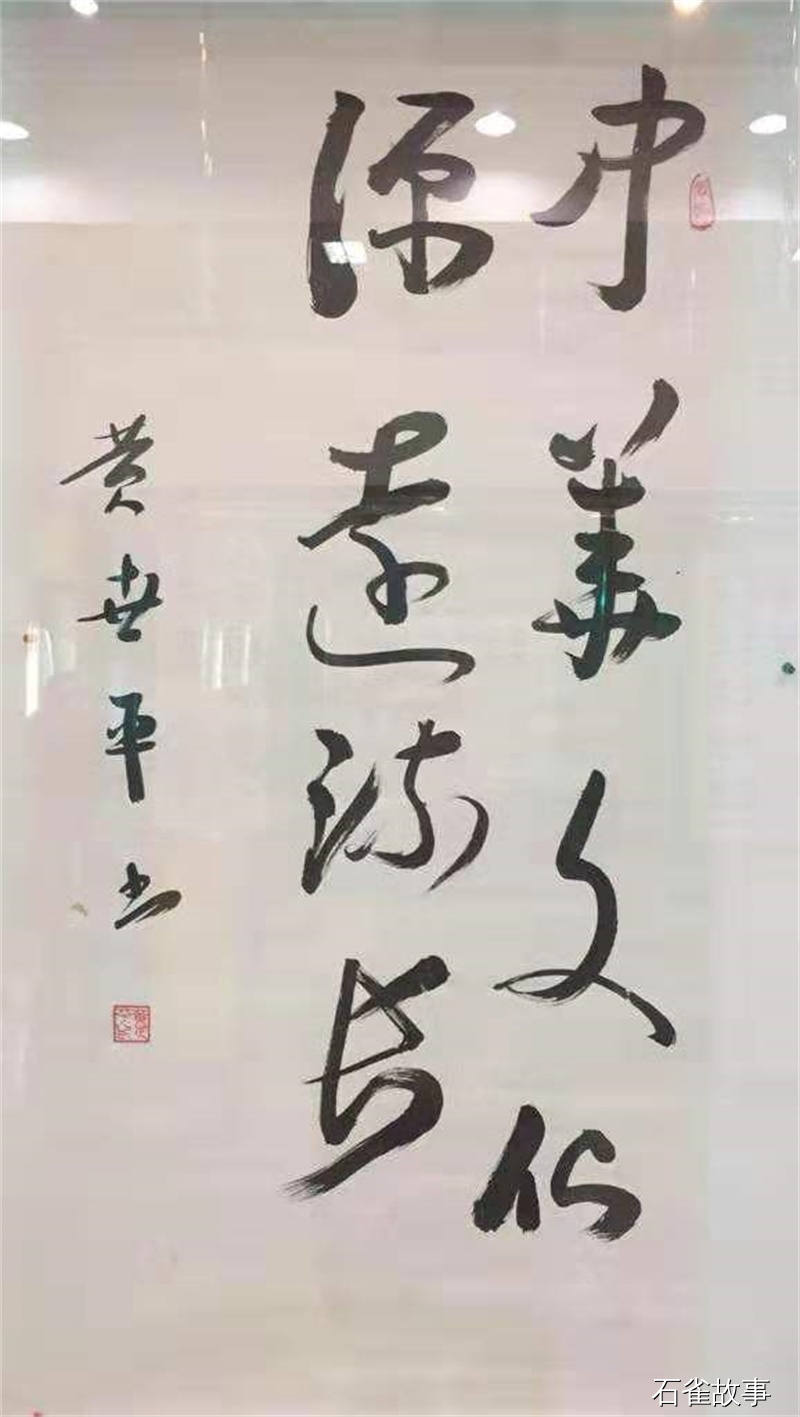 中華文化
源遠流長
黄世平书
石雀故事